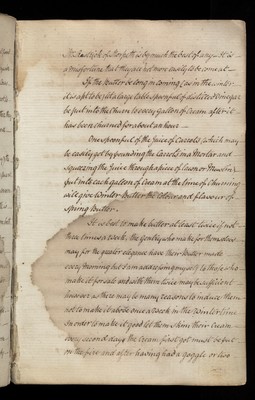 is by much the best of any. It is
a misfortune that they are not more easily to be come at.
If the Butter be long in coming, (as in the winter
it is apt to be) a large table Spoonful of distilled Vinegar
be put into the Churn to every Gallon of Cream after it
has been churned for about an hour
One spoonful of the Juice of Carrots (which may
be easily got by pounding the Carrots in a Mortar and
squeezing the Juice through a piece of Lawn or Muslin)
put into each gallon of Cream at the time of Churning
will give Winter Butter the Colour and flavour of
Spring Butter.
It is best to make butter at least twice if not
three times a Week. The gentry who make for themselves
may for the greater elegance have their Butter made
every Morning but I am addressing myself to those who
make it for sale and with them twice may be sufficient
however as there may be many reasons to induce them
not to make it above once a Week in the Winter time
In order to make it good let them skim their Cream
every second day, the Cream first got must be put
on the fire and after having had a or two